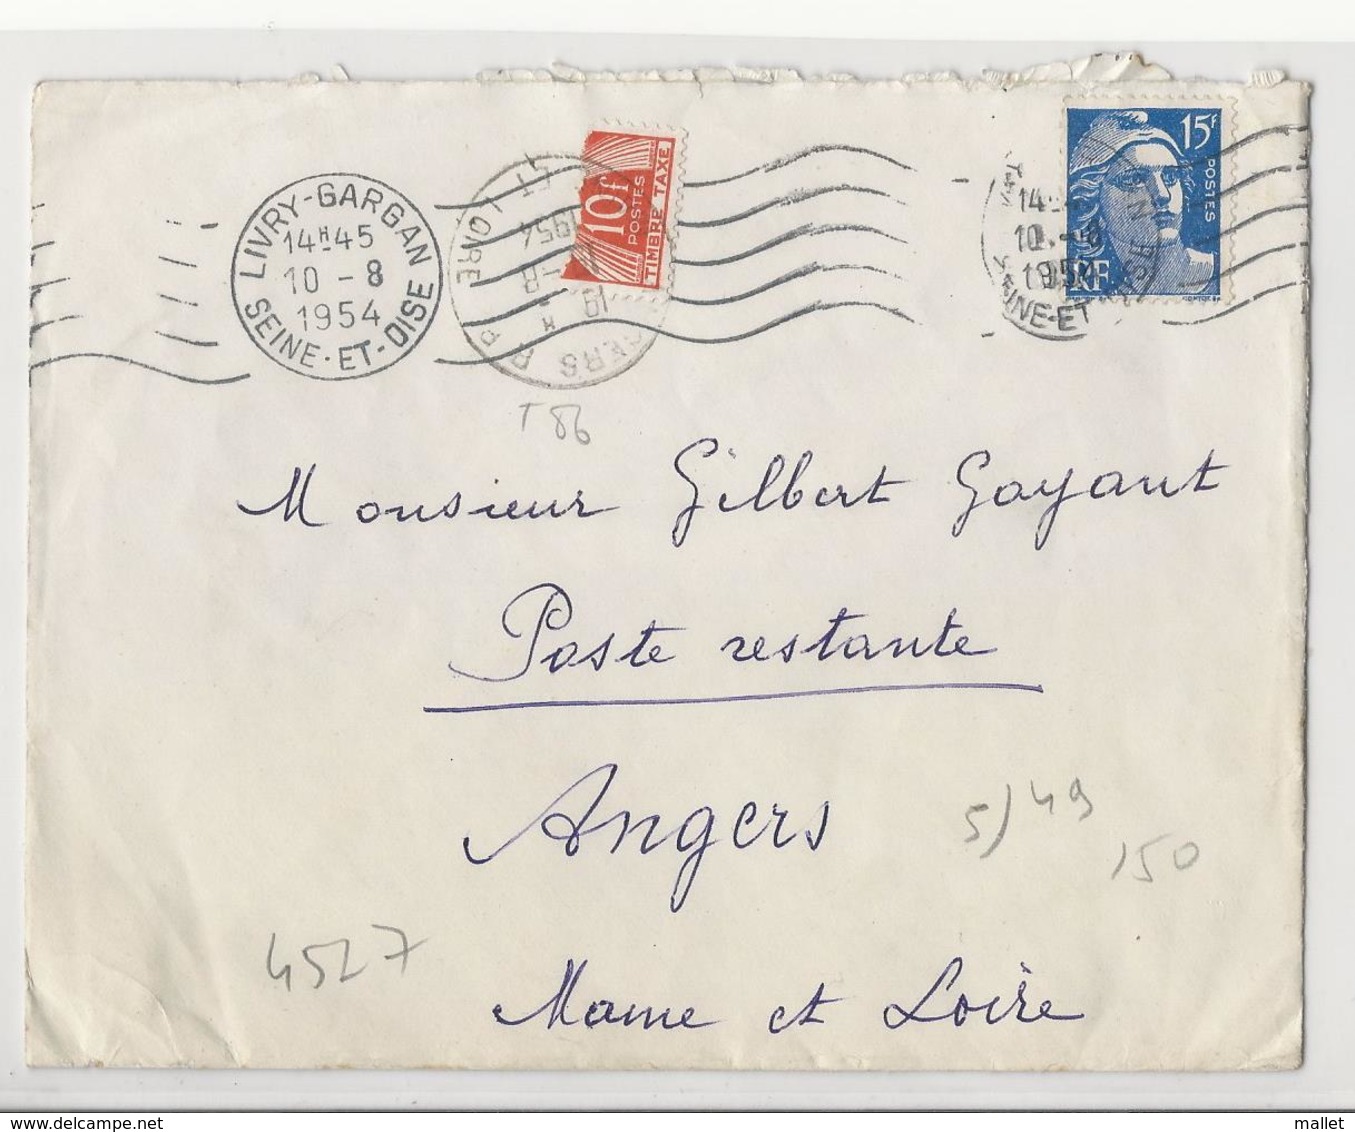 LIVRY-GARGAN
14H45
10 - 8
1954
SEINE-ET-OISE
10f
POSTES
TIMBRE TAXE
ET LOIRE
1954
R.P.
15F
POSTES
RF
14
10 - 8
1954
SEINE-ET
T 86
Monsieur Gilbert Gayant
Poste restante
Angers
5) 49
150
4527
Maine et Loire
delcampe.net
mallet